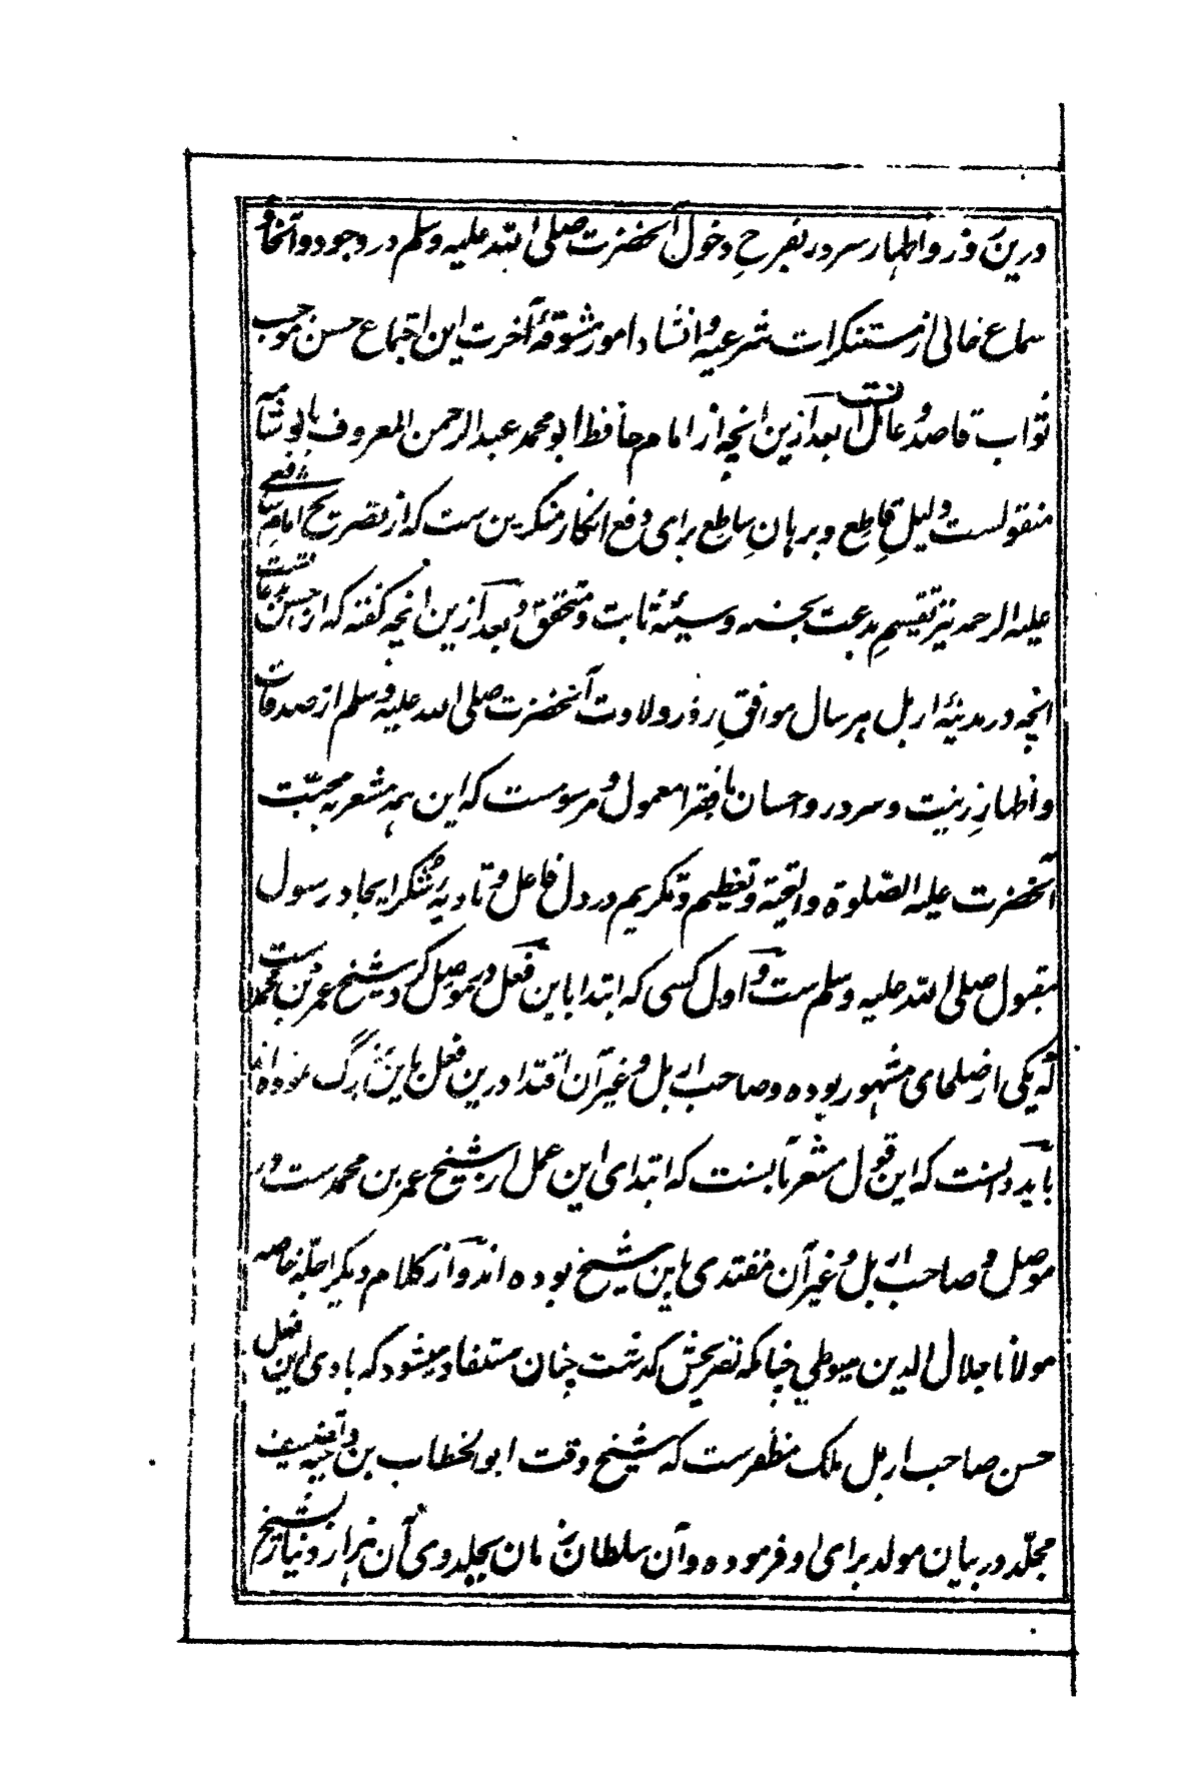 درین روز و اظهار سرور بفرحِ دخول آنحضرت صلی الله علیه وسلم در وجود و اتخاذ
سماع خالی از مستنکرات شرعیه و انشاد امور مشوقهٔ آخرت این اجتماع حسن موجب
ثواب قاصد و عامل آنست بعد ازین انچه از امام حافظ ابو محمد عبدالرحمن المعروف بابوشامه
منقولست دلیل قاطِع و برهانِ ساطِع برای دفع انکار منکرین ست که از تصریح امام شافعی
علیه الرحمه نیز تقسیمِ بدعت بحسنه و سیئه ثابت و متحقق و بعد ازین انچه گفته که از احسن بدعات ست
انچه در مدینهٔ اربل هر سال موافقِ روز ولادت آنحضرت صلی الله علیه وسلم از صدقات
و اظهارِ زینت و سرور و احسان بفقرا معمول و مرسومست که این همه مشعر به محبّت
آنحضرت علیه الصّلوة والتحیة و تعظیم و تکریم در دل فاعل و تادیهٔ شکر ایجاد رسول
مقبول صلی الله علیه وسلم ست و اول کسی که ابتدا باین فعل در موصل کرد شیخ عمر بن محمد ست
که یکی از صلحای مشهور بوده و صاحب اربل و غیر آن اقتدا درین فعل باین بزرگ نموده اند
باید دانست که این قول مشعر بآنست که ابتدای این عمل از شیخ عمر بن محمد ست در
موصل و صاحب اربل و غیر آن مقتدی باین شیخ بوده اند و از کلام دیگر اجلّه خاصه
مولانا جلال الدین سیوطی چنانکه تصریحش گذشت چنان مستفاد میشود که بادی این فعل
حسن صاحب اربل ملک مظفرست که شیخ وقت ابوالخطاب بن دحیه تصنیف
مجلّد در بیان مولد برای او فرموده و آن سلطان زمان بجلدوی آن هزار دینار بشیخ